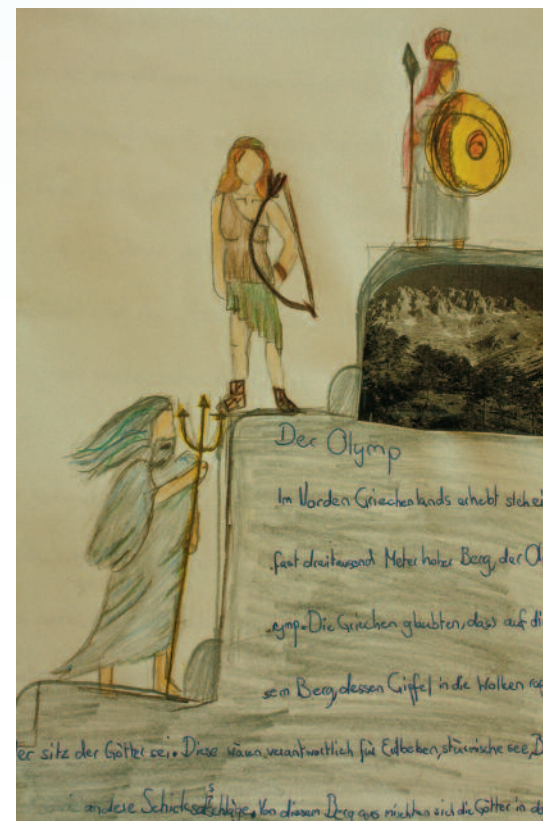 Der Olymp
Im Norden Griechenlands erhebt sich ei
fast dreitausend Meter hoher Berg, der O
ymp. Die Griechen glaubten, dass auf die
sem Berg, dessen Gipfel in die Wolken rag
er sitz der Götter sei. Diese wären verantwortlich für Erdbeben, stürmische see, B
andere Schicksalsschläge. Von diesem Berg aus mischten sich die Götter in da